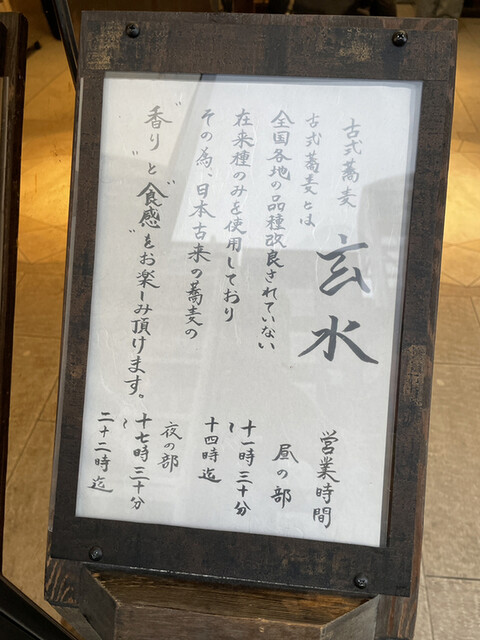 古式蕎麦 玄水
古式蕎麦とは
全国各地の品種改良されていない
在来種のみを使用しており
その為、日本古来の蕎麦の
"香り"と"食感"をお楽しみ頂けます。
営業時間
昼の部
十一時三十分
〜
十四時迄
夜の部
十七時三十分
〜
二十二時迄